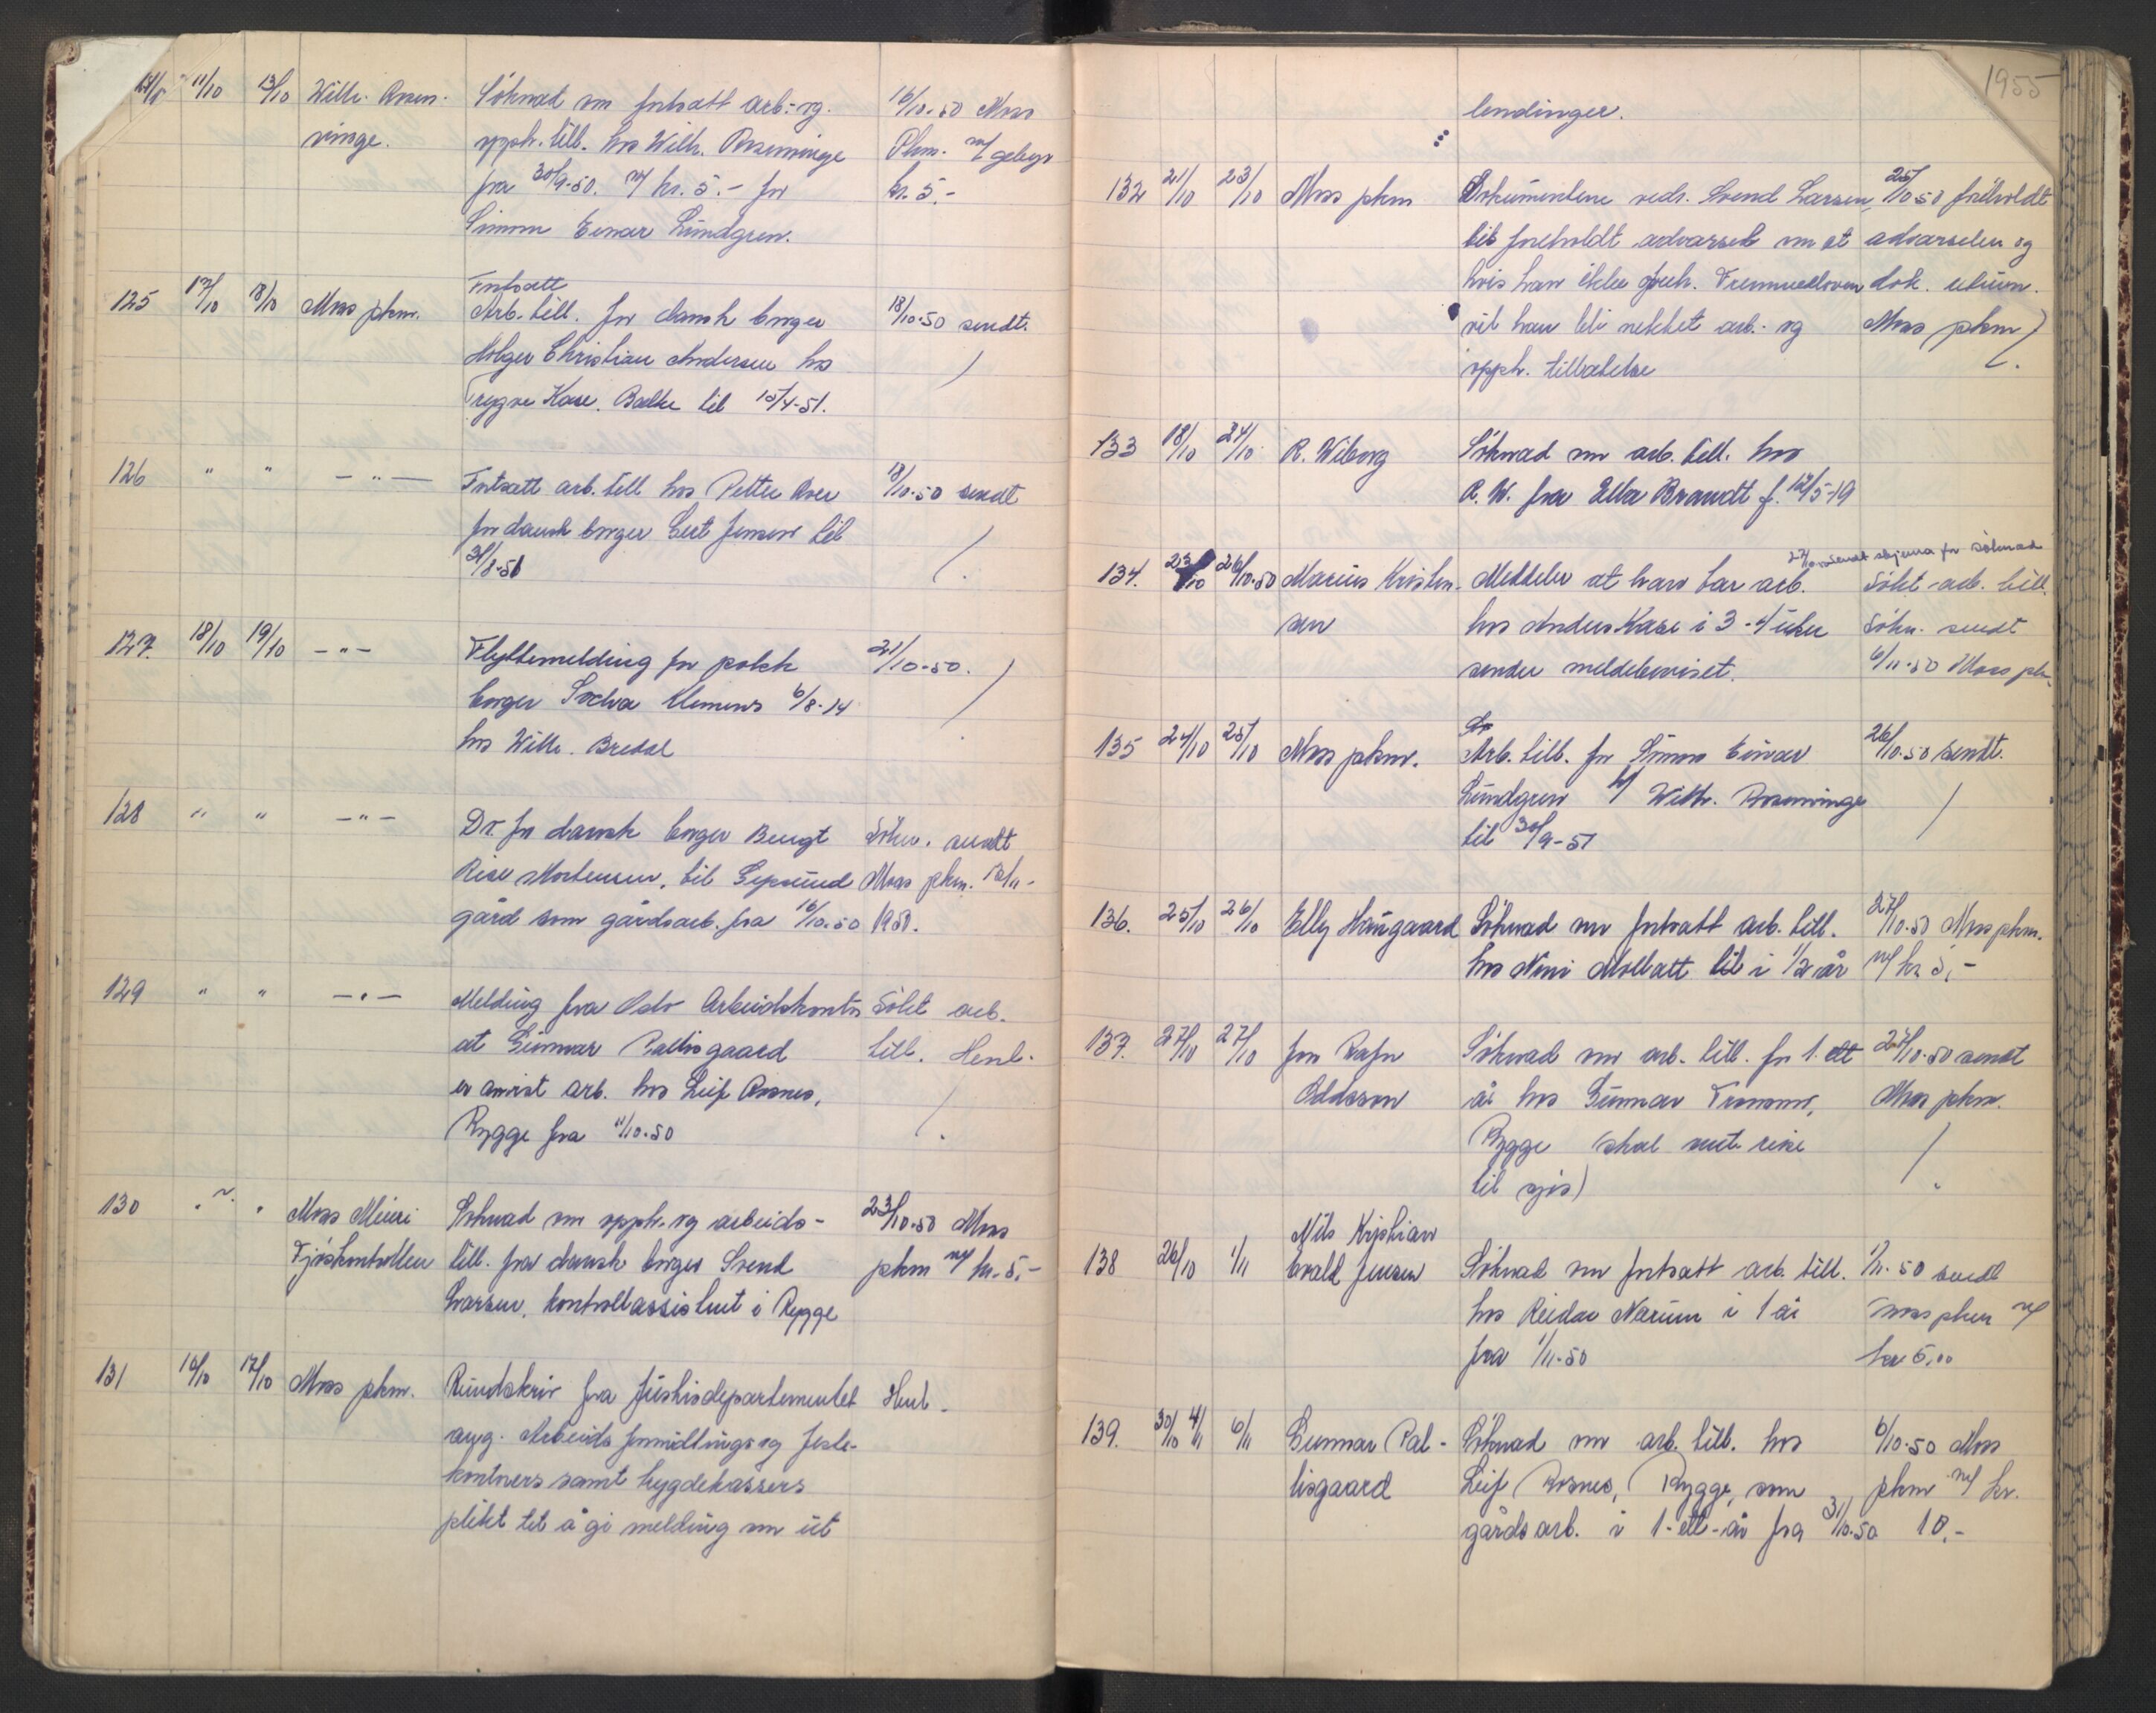 11/10 13/10 Wilh. Rosen- Söknad om fortsatt arb.- og 16/10-50 Moss
vinge. opph. till. hos Wilh. Rosenvinge Pkm. m/ gebyr
fra 30/9-50. m/ kr. 5.- for kr. 5.-
Simon Einar Lundgren.
Fortsatt
125 17/10 18/10 Moss pkm. Arb. till. for dansk borger 18/10-50 sendt.
Holger Christian Andersen hos
Trygve Kase. til 15/4-51.
126 " " - " - Fortsatt arb. till hos Petter 18/10-50 sendt
for dansk borger Gert Jensen til
31/8-51
127. 18/10 19/10 - " - Flyttemelding for polsk 21/10-50.
borger Klemens 6/8-14
hos Wilh. Bredal
128 " " - " - Do. for dansk borger Bengt Sökn. sendt
Mortensen, til Moss pkm.
gård som gårdsarb. fra 16/10-50 1950.
129 " " - " - Melding fra Oslo Arbeidskontor Sökt arb.
at Gunnar Pallisgaard till. Henl.
er anvist arb. hos Leif Rosnes,
Rygge fra 11/10-50
130 " " Moss Meieri Söknad om opph.- og arbeids- 23/10-50 Moss
Fjöskontrollen till. fra dansk borger Svend pkm m/ kr. 5.-
Larsen, kontrollassistent i Rygge
131 16/10 17/10 Moss pkm. Rundskriv fra Justisdepartementet Henl.
ang. Arbeidsformidlings og feste-
kontorers samt trygdekassers
plikt til å gi melding om ut
1955
lendinger.
132 21/10 23/10 Moss pkm Dokumentene vedr. Svend Larsen, 25/10-50 foreholdt
til foreholdt advarsel om at advarselen og
hvis han ikke Fremmedloven dok. return.
vil han bli nektet arb.- og Moss pkm
opph. tillatelse
133 18/10 24/10 R. Wiborg Söknad om arb. till. hos
R. W. fra Ella Brandt f. 12/5-19
27/10 sendt skjema for söknad
134. 23/10 26/10-50 Marius Kristen- Meddeler at han har arb. Sökt arb. till.
sen hos Anders Kase i 3-4 uker Sökn. sendt
sender meldebeviset. 6/11-50 Moss pk.
135 24/10 25/10 Moss pkm. Arb. till. for Simon Einar 26/10-50 sendt.
Lundgren h/ Wilh. Rosenvinge
til 30/9-51
136. 25/10 26/10 Elly Haugaard Söknad om fortsatt arb. till. 27/10-50 Moss pkm.
hos Nini Mollatt til i 1/2 år m/ kr 5.-
137. 27/10 27/10 Jon Rafn Söknad om arb. till. for 1. ett 27/10-50 sendt
Oddsson år hos Gunnar Tronsmo, Moss pkm.
Rygge (skal reise
til sjös)
Nils Kristian
138 26/10 1/11 Evald Jensen Söknad om fortsatt arb. till. 1/11-50 sendt
hos Reidar Narum i 1 år Moss pkm m/
fra 1/11-50 kr 5,00
139. 30/10 4/11 6/11 Gunnar Pal- Söknad om arb. till. hos 6/10-50 Moss
lisgaard Leif Rosnes, Rygge, som pkm m/ kr.
gårdsarb. i 1-ett-år fra 31/10-50 10.-